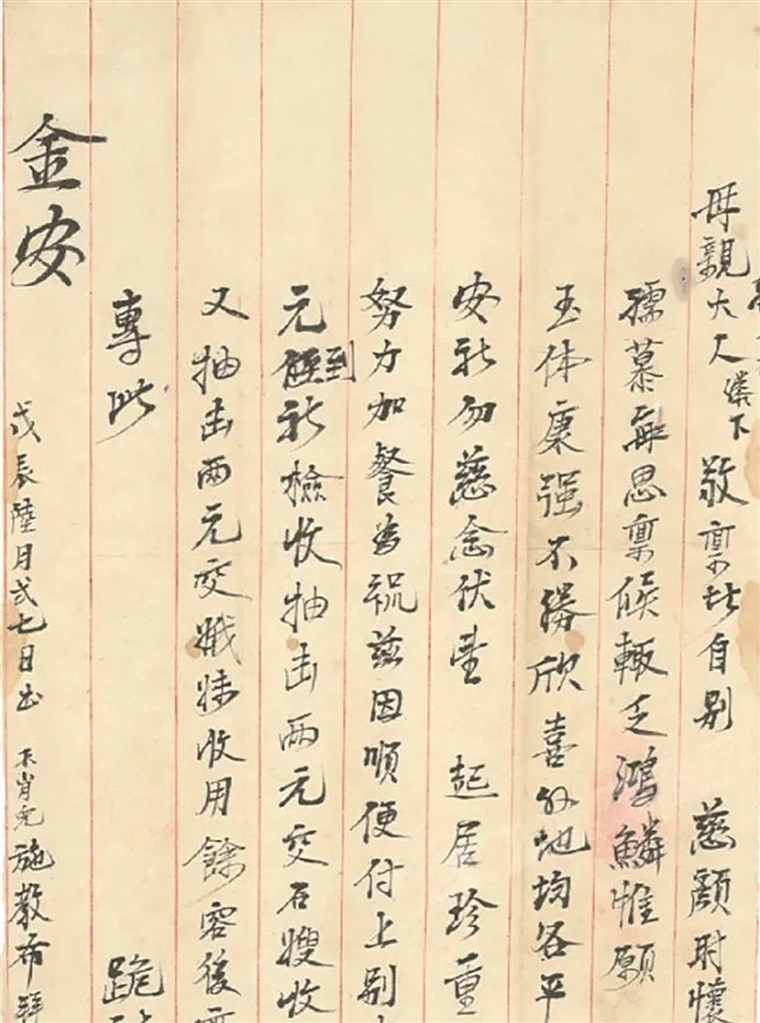 母親大人膝下敬稟者自別 慈顏時懷
孺慕無思稟候輒乏鴻鱗惟願
玉体康强不勝欣喜外地均各平
安祈勿慈念伏望 起居珍重
努力加餐為祝茲因順便付上別
元到祈檢收抽出兩元交石嫂收
又抽出兩元交収用餘容後
專此 跪
金安
戊辰陸月弍七日出 不肖兒施教布拜